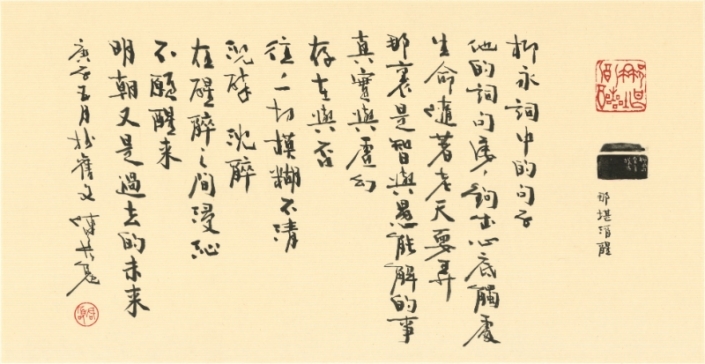 那堪酒醒
柳永詞中的句子
他的詞句屢〻鉤出心底觸處
生命隨著老天耍弄
那裏是智與愚能解的事
真實與虛幻
存在與否
往〻一切模糊不清
沉醉 沉醉
在醒醉之間浸沁
不願醒來
明朝又是過去的未來
庚子五月抄舊文 陳